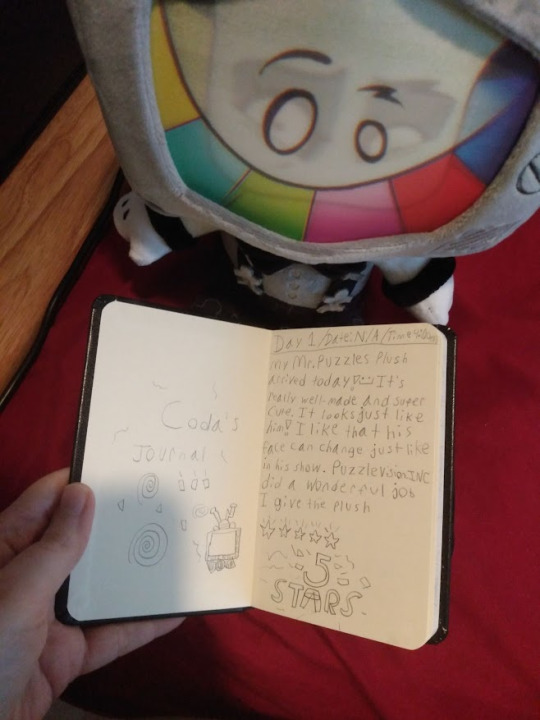 Coda's
Journal
Day 1/Date:N/A/Time
My Mr.Puzzles Plush
arrived today!! It's
really well-made and super
cute. It looks just like
him! I like that his
face can change just like
in his show. PuzzlevisionINC.
did a wonderful job
I give the plush
5
STARS